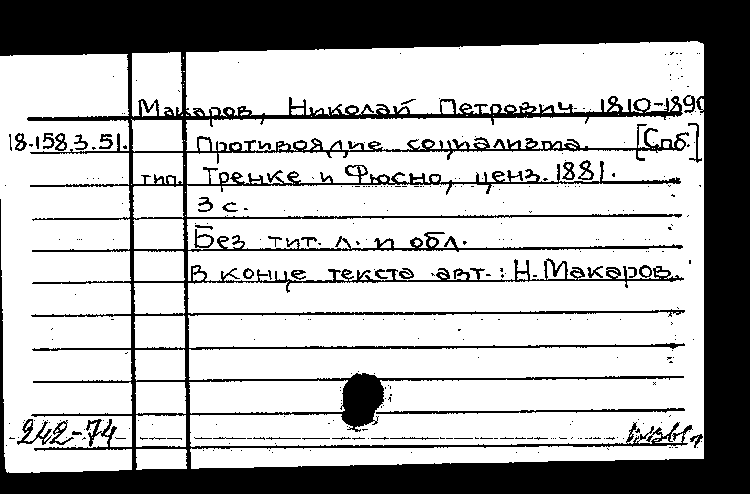 Макаров, Николай Петрович, 1810-1890
18.158.3.51. Противоядие социализма. [Спб.]
тип. Тренке и Фюсно, ценз. 1881.
3 с.
Без тит. л. и обл.
В конце текста авт.: Н. Макаров.
242-74